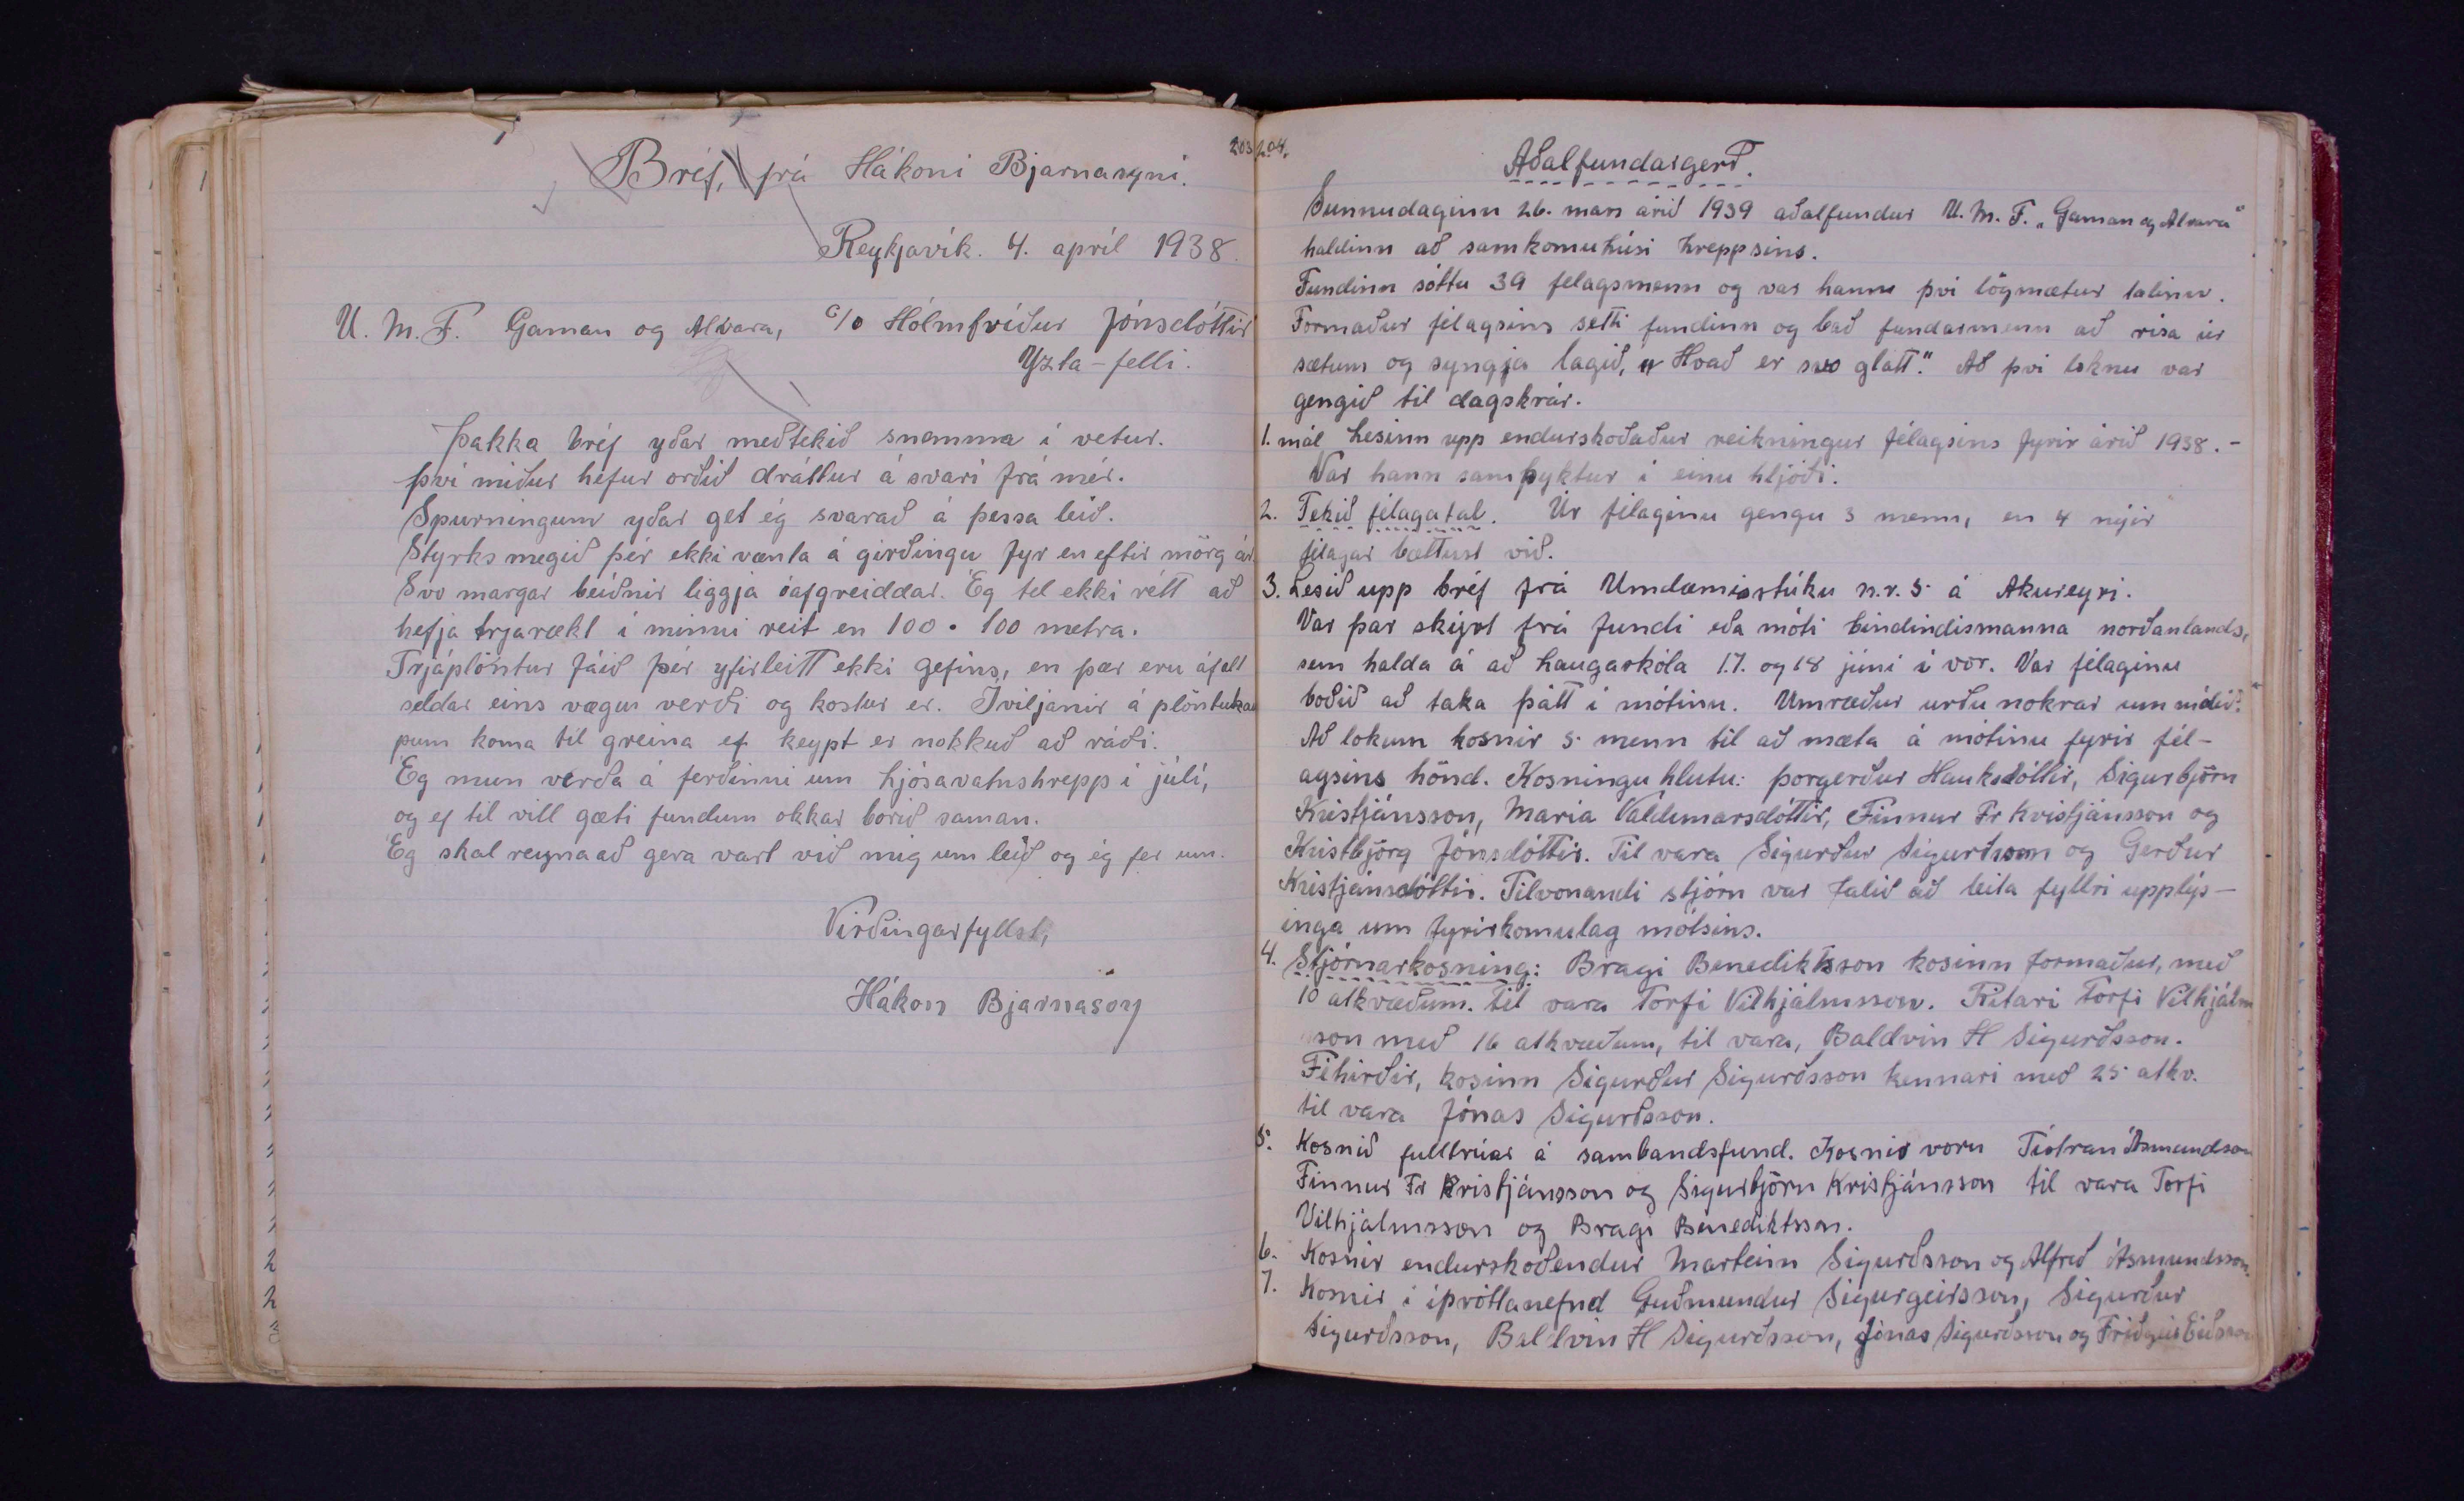 203
Bréf, frá Hákoni Bjarnasyni.
Reykjavík. 4. apríl 1938.
U. M. F. Gaman og Alvara, c/o Hólmfríður Jónsdóttir
Yzta-felli.
Þakka bréf yðar meðtekið snemma í vetur.
því miður hefur orðið dráttur á svari frá mér.
Spurningum yðar get ég svarað á þessa leið.
Styrks megið þér ekki vænta á girðingu fyr en eftir mörg ár.
Svo margar beiðnir liggja óafgreiddar. Ég tel ekki rétt að
hefja trjarækt í minni reit en 100 • 100 metra.
Trjáplöntur fáið þér yfirleitt ekki gefins, en þær eru áfalt
seldar eins vægu verði og kostur er. Íviljanir á plöntukau
pum koma til greina ef keypt er nokkuð að ráði.
Eg mun verða á ferðinni um Ljósavatnshrepp í júlí,
og ef til vill gæti fundum okkar borið saman.
Eg skal reyna að gera vart við mig um leið og ég fer um.
Virðingarfyllst,
Hákon Bjarnason
204.
Aðalfundargerð.
Sunnudaginn 26. mars árið 1939 aðalfundur U. M. F. „Gaman og Alvara"
haldinn að samkomuhúsi hreppsins.
Fundinn sóttu 39 félagsmenn og var hann því lögmætur talinn.
Formaður félagsins setti fundinn og bað fundarmenn að rísa úr
sætum og syngja lagið, „Hvað er svo glatt." Að því loknu var
gengið til dagskrár.
1. mál Lesinn upp endurskoðaður reikningur félagsins fyrir árið 1938. -
Var hann samþyktur í einu hljóði.
2. Tekið félagatal. Úr félaginu gengu 3 menn, en 4 nýir
félagar bættust við.
3. Lesið upp bréf frá Umdæmisstúku n.r. 5 á Akureyri.
Var þar skýrt frá fundi eða móti bindindismanna norðanlands,
sem halda á að Laugaskóla 17. og 18 júní í vor. Var félaginu
boðið að taka þátt í mótinu. Umræður urðu nokrar um málið.
Að lokum kosnir 5 menn til að mæta á mótinu fyrir fél-
agsins hönd. Kosningu hlutu: Þorgerður Hauksdóttir, Sigurbjörn
Kristjánsson, María Valdimarsdóttir, Finnur Fr Kristjánsson og
Kristbjörg Jónsdóttir. Til vara Sigurður Sigurðsson og Gerður
Kristjánsdóttir. Tilvonandi stjórn var falið að leita fyllri upplýs-
inga um fyrirkomulag mótsins.
4. Stjórnarkosning: Bragi Benediktsson kosinn formaður, með
10 atkvæðum. til vara Torfi Vilhjálmsson. Ritari Torfi Vilhjálm
sson með 16 atkvæðum, til vara, Baldvin H Sigurðsson.
Féhirðir, kosinn Sigurður Sigurðsson kennari með 25 atkv.
til vara Jónas Sigurðsson.
5. Kosnið fulltrúar á sambandsfund. Kosnir voru Tístran Ásmundson
Finnur Fr Kristjánsson og Sigurbjörn Kristjánsson til vara Torfi
Vilhjálmsson og Bragi Benediktsson.
6. Kosnir endurskoðendur Marteinn Sigurðsson og Alfreð Ásmundsson.
7. Kosnir í íþróttanefnd Guðmundur Sigurgeirsson, Sigurður
Sigurðsson, Baldvin H Sigurðsson, Jónas Sigurðsson og Friðgeir Eiðsson